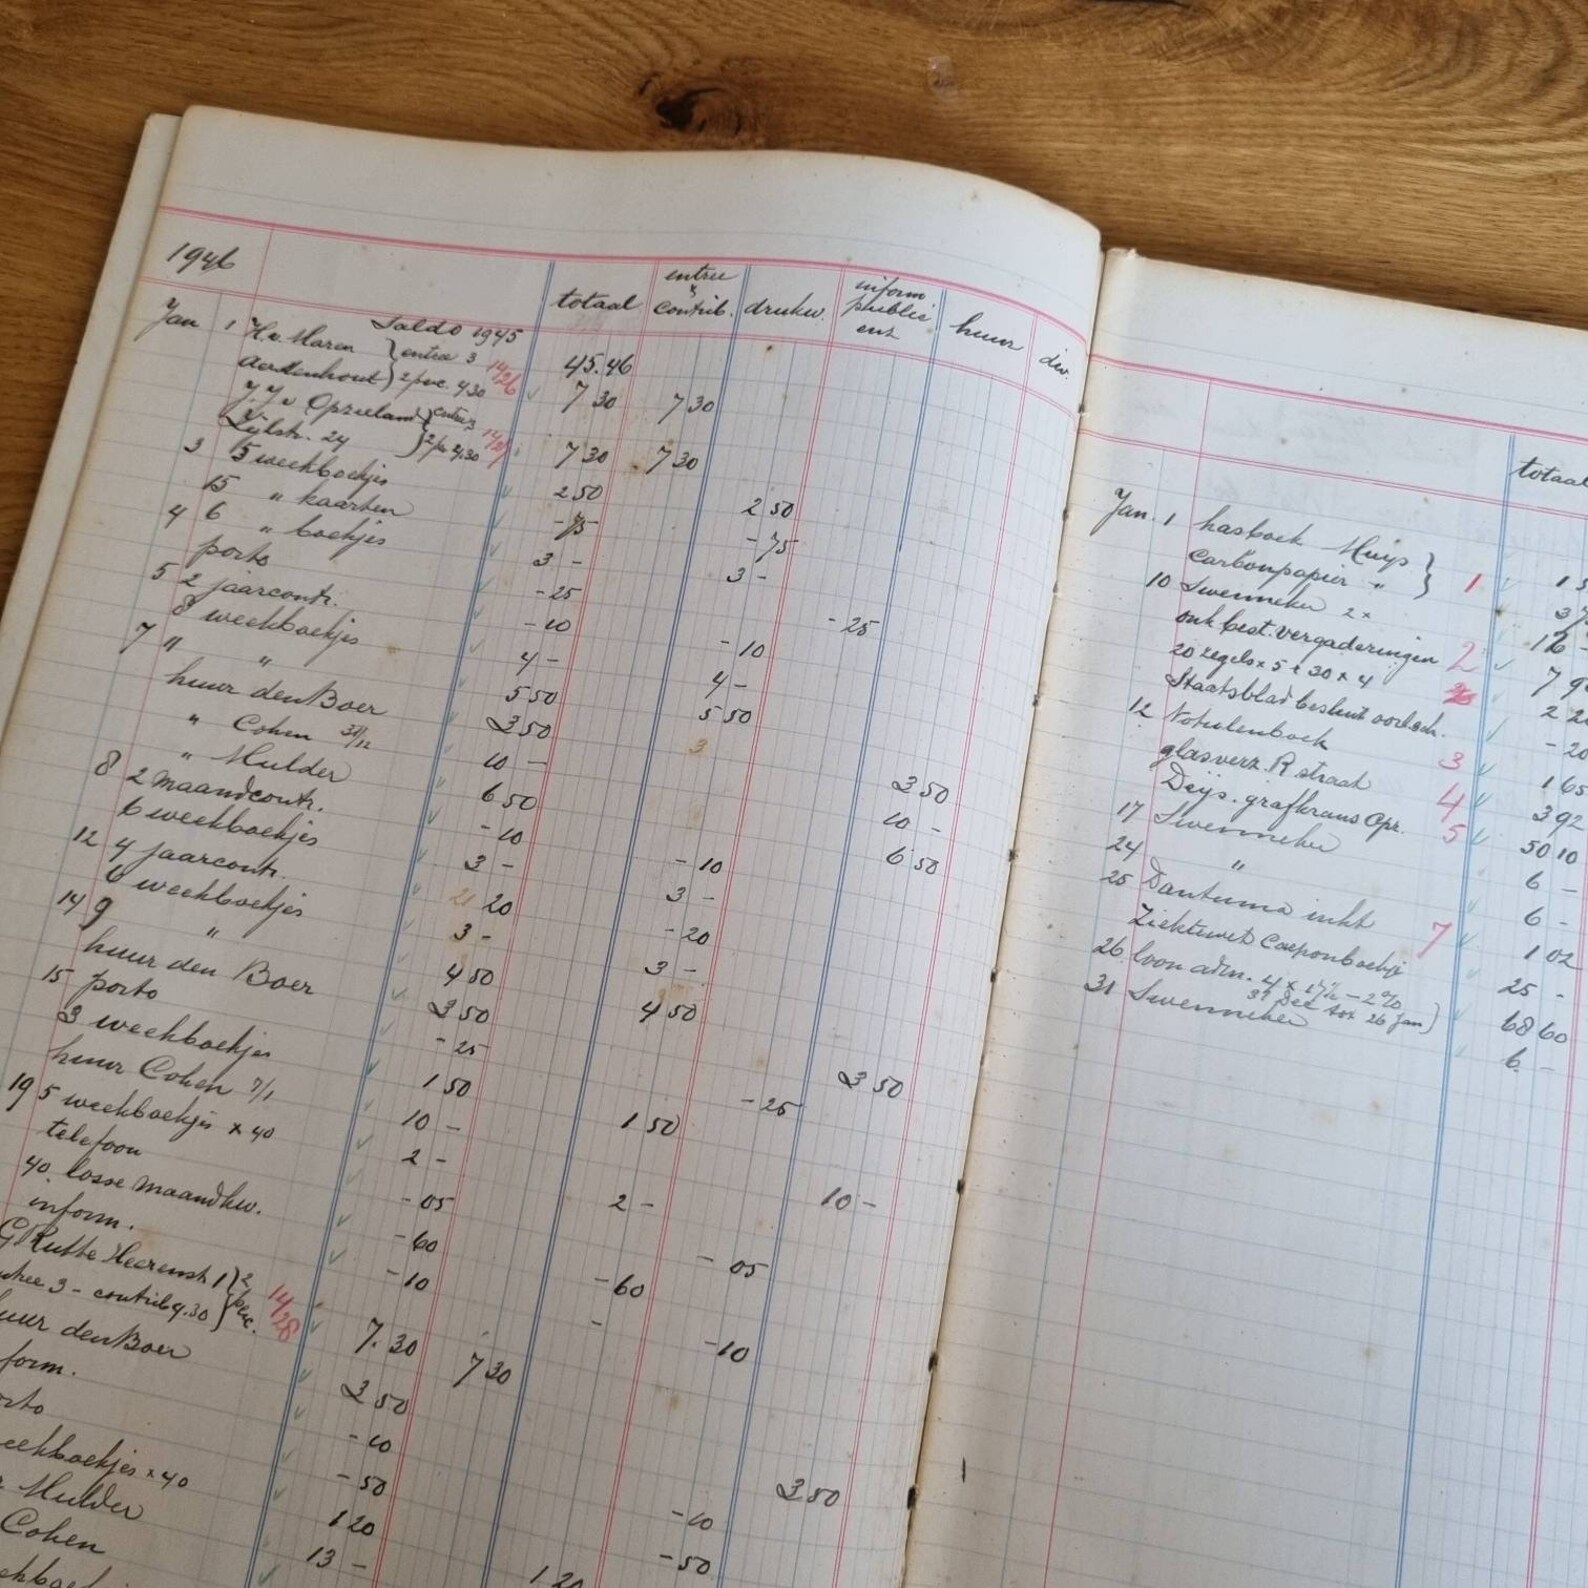 1946
totaal entree & contrib. drukw. inform. public. enz huur div.
Saldo 1945 45.46
Jan 1 H. v. Maren } entree 3 14/26
Aerdenhout } 2 per. 4.30 7 30 7 30
J. J. v Opzeeland } entree 3
24 } 2 per 4.30 7 30 7 30
3 5 weekboekjes 2 50 2 50
15 " kaarten - 75 - 75
4 6 " boekjes 3 - 3 -
porto - 25 - 25
5 2 jaarcontr. - 10 - 10
8 weekboekjes 4 - 4 -
7 11 " 5 50 5 50
huur den Boer 3 50 3 50
" Cohen 31/12 10 - 10 -
" Mulder 6 50 6 50
8 2 maandcontr. - 10 - 10
6 weekboekjes 3 - 3 -
12 4 jaarcontr. 20 - 20
6 weekboekjes 3 - 3 -
14 9 " 4 50 4 50
huur den Boer 3 50 3 50
15 porto - 25 - 25
3 weekboekjes 1 50 1 50
huur Cohen 7/1 10 - 10 -
19 5 weekboekjes x 40 2 - 2 -
telefoon - 05 - 05
40 losse maandkw. - 60 - 60
inform. - 10 - 10
G Rutte Heerenstr 1 } 2
entree 3 - contrib 4.30 } per. 14/28 7.30 7 30
huur den Boer 3 50 3 50
form. - 10 - 10
orto - 50 - 50
eekboekjes x 40 1 20 1 20
Mulder 13 -
Cohen
ekboe
totaal
Jan. 1 kasboek Muys } 1
carbonpapier " }
10 Swenneker 2x 12 -
onk best. vergaderingen 2
20 zegels x 5 + 30 x 4 2 20
Staatsblad besluit - 20
12 Notulenboek 3 1 65
glasverz. R straat 4 3 92
Deijs. grafkrans Opz. 5 50 10
17 Swenneker 6 -
24 " 6 -
25 Dantuma inkt 7 1 02
Ziektewet couponboekje 25 -
26 loon adm. 4 x 17½ - 2% 68 60
31 Dec tot 26 Jan
31 Swenneker 6 -